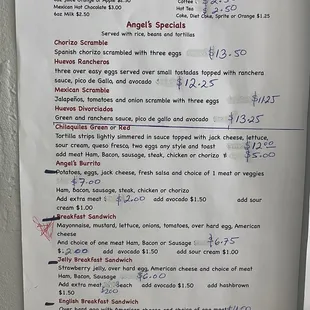 Mexican Hot Chocolate $3.00
6oz Milk $2.50
Coffee
Hot Tea $2.50
Coke, Diet Coke, Sprite or Orange $1.25
Angel's Specials
Served with rice, beans and tortillas
Chorizo Scramble
Spanish chorizo scrambled with three eggs $13.50
Huevos Rancheros
three over easy eggs served over small tostadas topped with ranchera
sauce, pico de Gallo, and avocado $12.25
Mexican Scramble
Jalapeños, tomatoes and onion scramble with three eggs $11.25
Huevos Divorciados
Green and ranchera sauce, pico de gallo and avocado $13.25
Chilaquiles Green or Red
Tortilla strips lightly simmered in sauce topped with jack cheese, lettuce,
sour cream, queso fresco, two eggs any style and toast $12.00
add meat Ham, Bacon, sausage, steak, chicken or chorizo $5.00
Angel's Burrito
Potatoes, eggs, jack cheese, fresh salsa and choice of 1 meat or veggies
$7.00
Ham, Bacon, sausage, steak, chicken or chorizo
Add extra meat $2.00 add avocado $1.50 add sour
cream $1.00
Breakfast Sandwich
Mayonnaise, mustard, lettuce, onions, tomatoes, over hard egg, American
cheese
And choice of one meat Ham, Bacon or Sausage $6.75
$2.00 add avocado $1.50 add sour cream $1.00
Jelly Breakfast Sandwich
Strawberry jelly, over hard egg, American cheese and choice of meat
Ham, Bacon, Sausage $6.00
Add extra meat each add avocado $1.50 add hashbrown
$1.50 $2.00
English Breakfast Sandwich